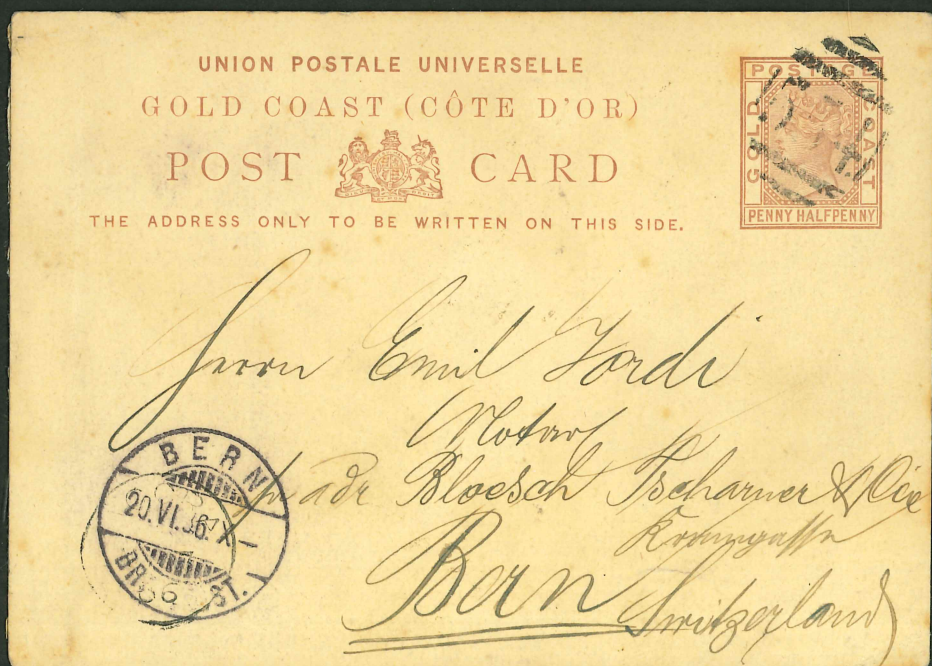 UNION POSTALE UNIVERSELLE
GOLD COAST (CÔTE D'OR)
POST CARD
THE ADDRESS ONLY TO BE WRITTEN ON THIS SIDE.
POSTAGE
GOLD COAST
PENNY HALFPENNY
Herrn Emil Jordi
Notar
adr Bloesch Tscharner & Cie
Kramgasse
Bern
Switzerland
BERN
20.VI.96. X
ST.